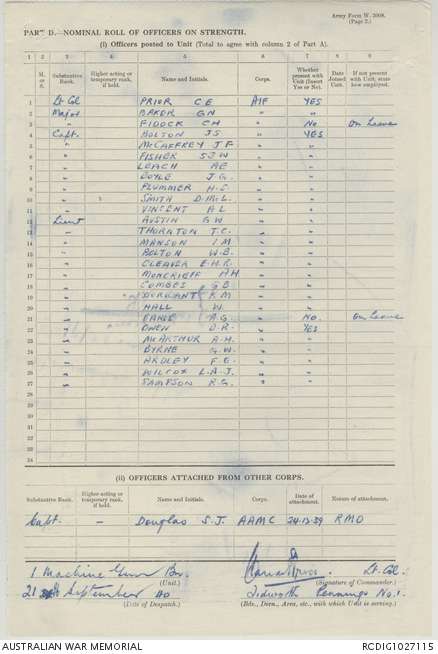 Army Form W. 3008.
(Page 2.)
PART D.—NOMINAL ROLL OF OFFICERS ON STRENGTH.
(i) Officers posted to Unit (Total to agree with column 2 of Part A).
1 2 3 4 5 6 7 8 9
M. or S. Substantive Rank. Higher acting or temporary rank, if held. Name and Initials. Corps. Whether present with Unit (Insert Yes or No). Date Joined Unit. If not present with Unit, state how employed.
1 Lt Col PRIOR C E AIF YES
2 Major BAKER G N " "
3 " FIDOCK C H " No On Leave
4 Capt. BOLTON J S " YES
5 " McCAFFREY J F " "
6 " FISHER S J W " "
7 " LEACH A E " "
8 " DOYLE J. G. " "
9 " PLUMMER H. S " "
10 " SMITH D. McL. " "
11 " VINCENT A L " "
12 Lieut AUSTIN G W " "
13 " THORNTON T. C. " "
14 " MANSON I. M " "
15 " BOLTON W. B. " "
16 " CLEAVER E. H. R. " "
17 " MONCRIEFF A. H " "
18 " COMBES G B. " "
19 " R M " "
20 " HALL W. " "
21 " A. G. " NO. On Leave
22 " OWEN D. R. " YES
23 " McARTHUR A. H. " "
24 " BYRNE G. W. " "
25 " ARDLEY F. G. " "
26 " WILCOX L. A. J. " "
27 " SAMPSON R. G. " "
28
29
30
31
32
33
34
(ii) OFFICERS ATTACHED FROM OTHER CORPS.
Substantive Rank. Higher acting or temporary rank, if held. Name and Initials. Corps. Date of attachment. Nature of attachment.
Capt. — Douglas S. J. AAMC 24-12-39 RMO
1 Machine Gun Bn. Lt. Col.
(Unit.) (Signature of Commander.)
21 September 40 Tidworth Pennings No. 1.
(Date of Despatch.) (Bde., Divn., Area, etc., with which Unit is serving.)
AUSTRALIAN WAR MEMORIAL RCDIG1027115